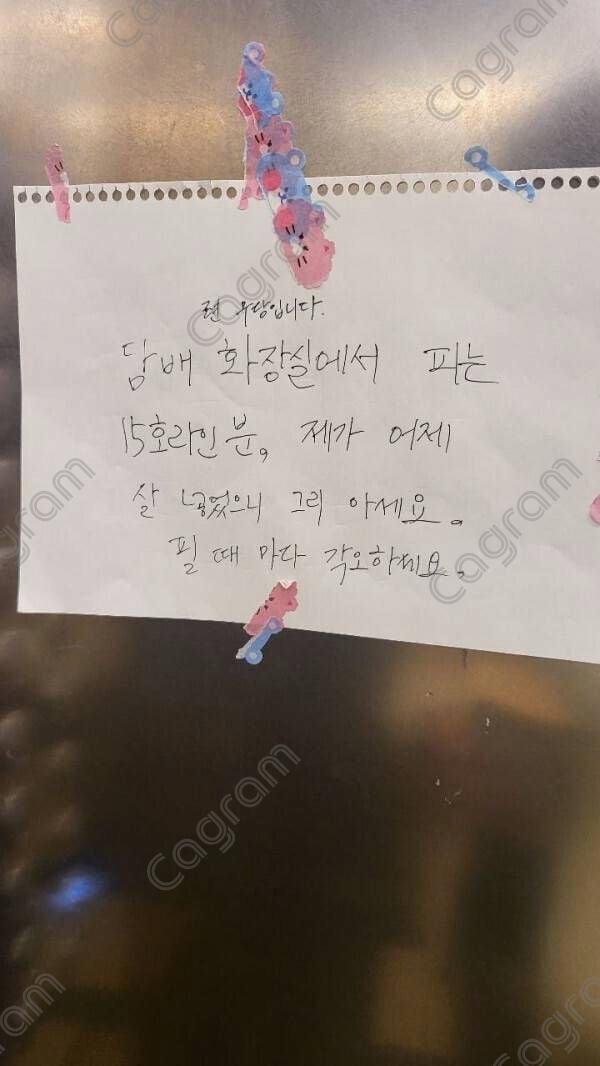 전 무당입니다.
담배 화장실에서 피는
15호라인 분, 제가 어제
살 넣었으니 그리 아세요.
필 때 마다 각오하세요.
Cagram
Cagram
Cagram
Cagram
Cagram
Cagram
Cagram